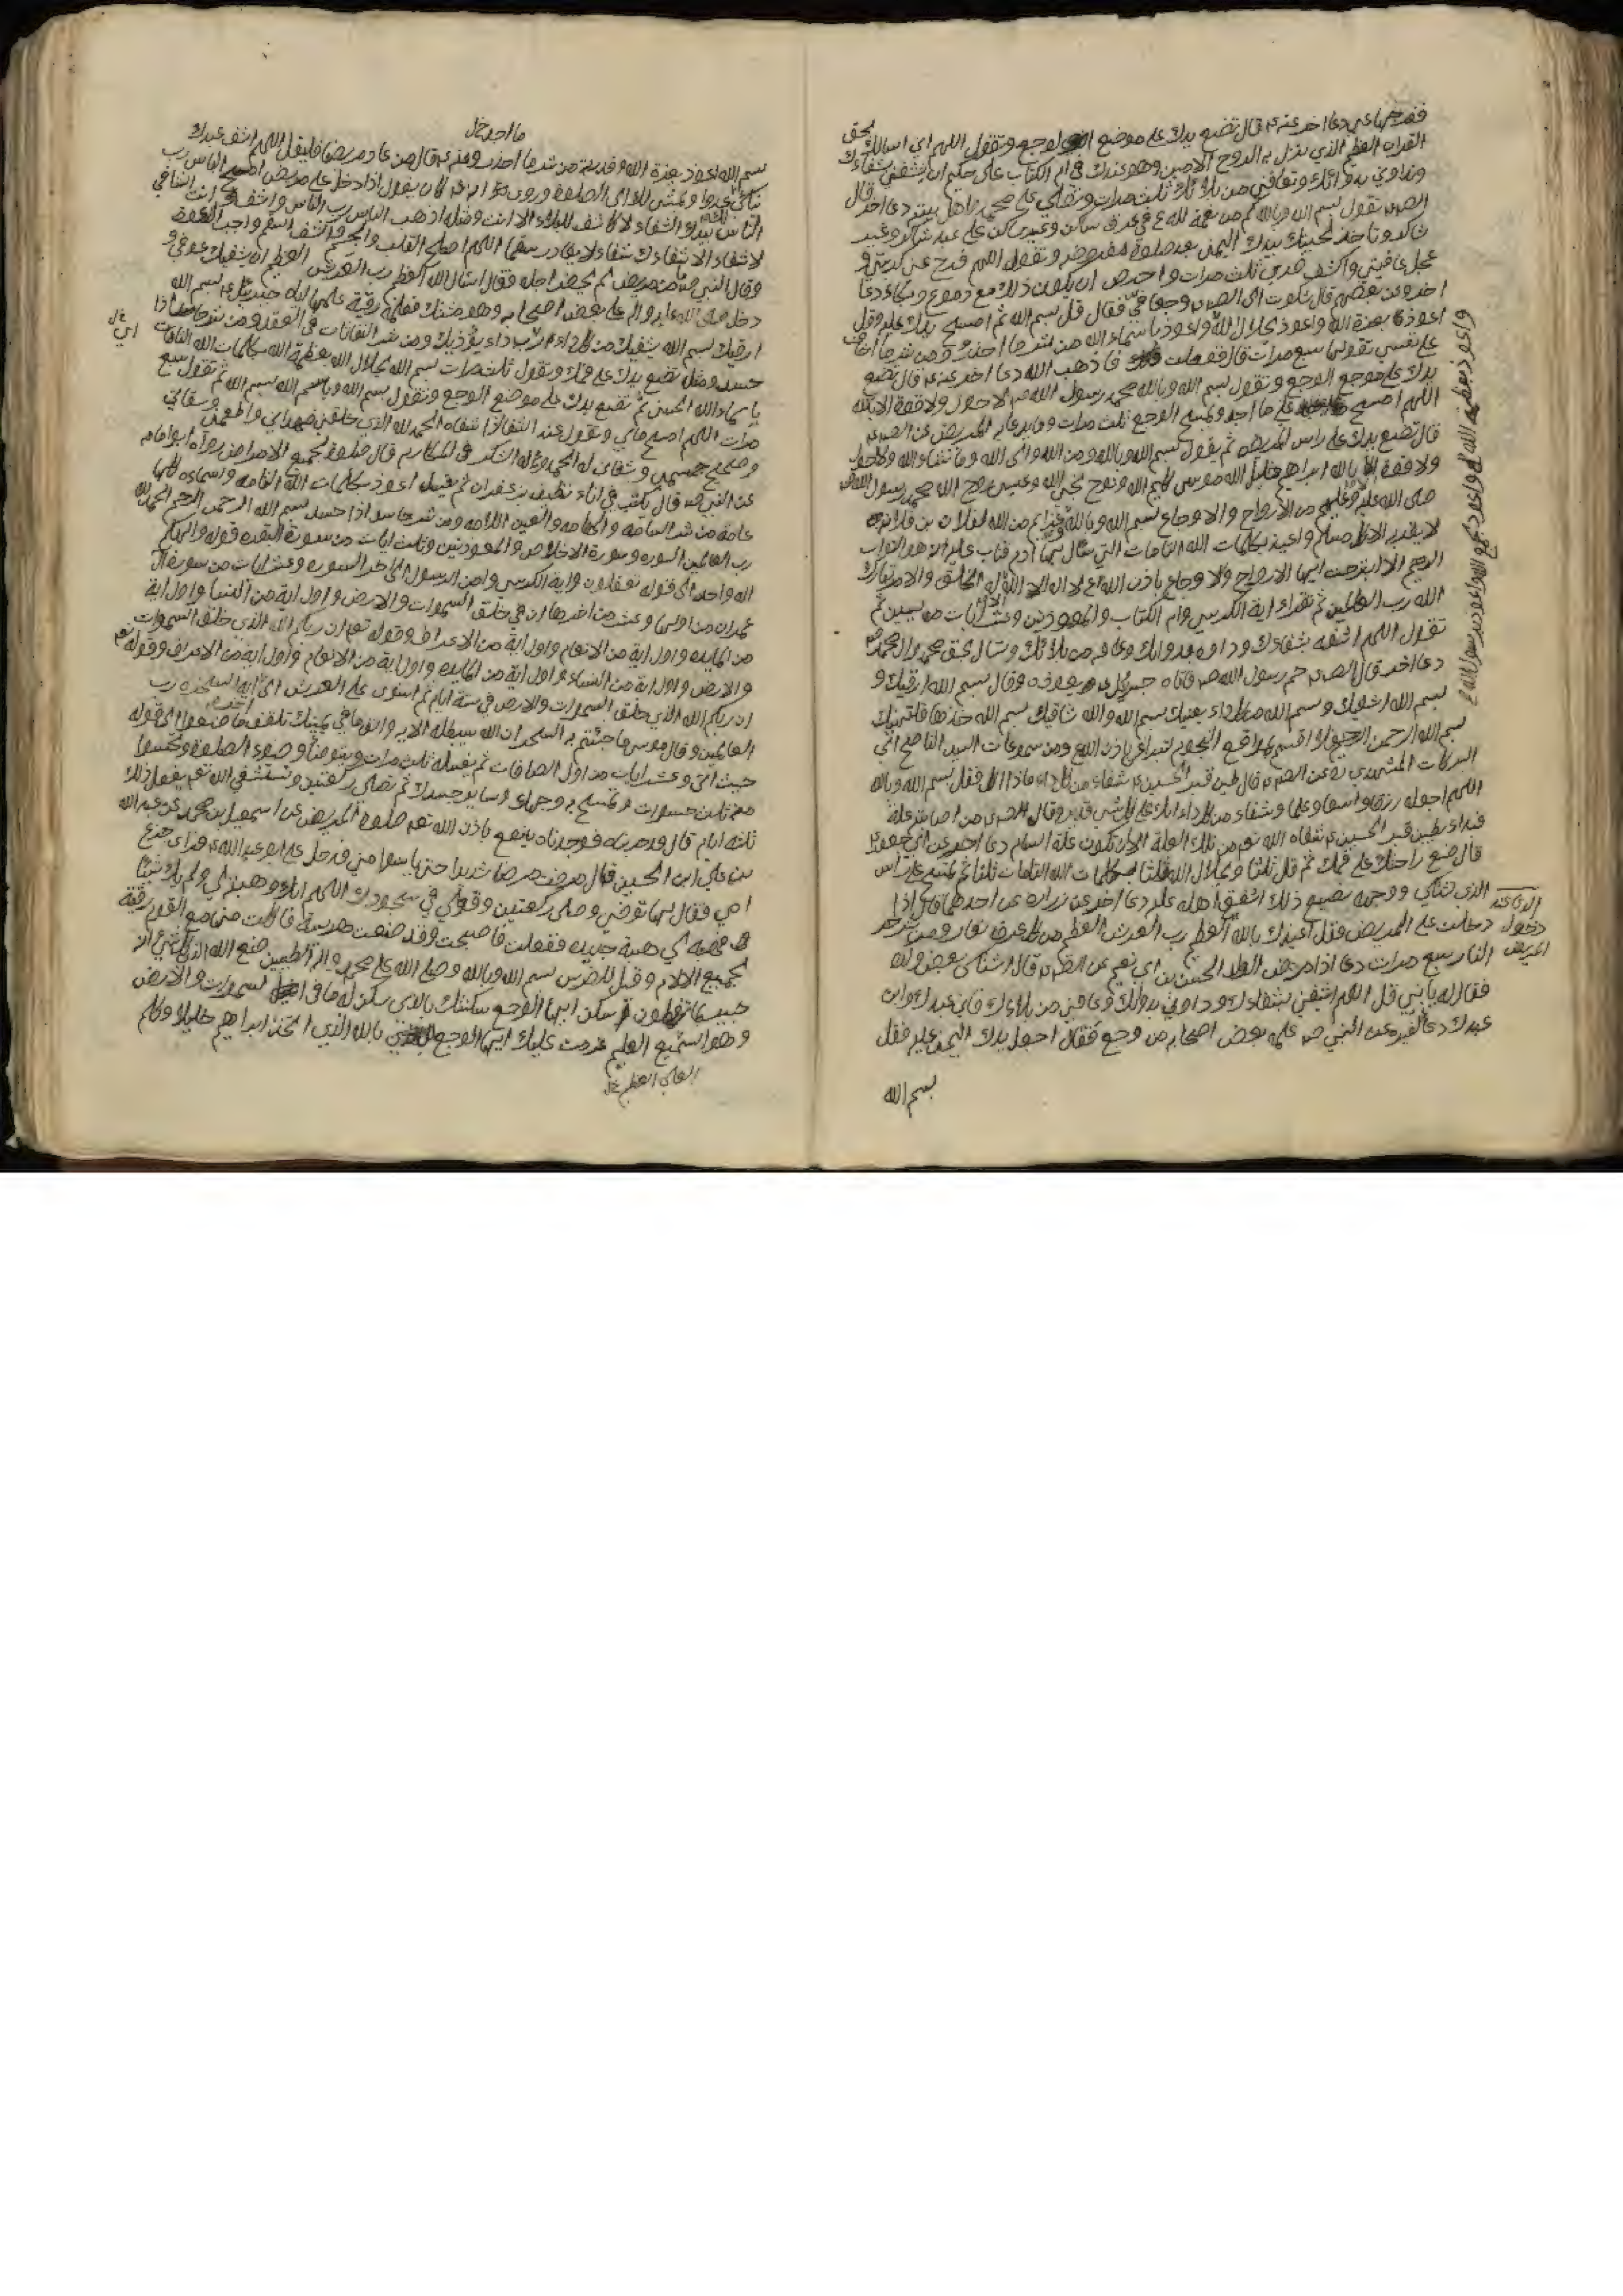 ففرجها عني دعا اخر عنه ع قال تضع يدك على موضع الوجع وتقول اللهم اني اسالك بحق
القران العظيم الذي نزل به الروح الامين وهو عندك في ام الكتاب علي حكيم ان تشفيني بشفائك
وتداويني بدوائك وتعافيني من بلائك ثلث مرات وتصلي على محمد واهل بيته دعا اخر قال
الص ع تقول بسم الله وبالله كم من نعمة لله في عرق ساكن وغير ساكن على عبد شاكر وغير
شاكر وتاخذ لحيتك بيدك اليمنى بعد صلوة مفروضة وتقول اللهم فرج عني كربتي و
عجل عافيتي واكشف ضري ثلث مرات واحرص ان يكون ذلك مع دموع وبكاء دعا
اخر وعن بعضهم قال شكوت الى الص ع وجعا في فقال قل بسم الله ثم امسح يدك عليه وقل
اعوذ بعزة الله واعوذ بجلال الله واعوذ باسماء الله من شر ما احذر ومن شر ما اخاف
على نفسي تقولها سبع مرات قال ففعلت فاذهب الله دعا اخر عنه ع قال تضع
يدك على موضع الوجع وتقول بسم الله وبالله محمد رسول الله ص لا حول ولا قوة الا بالله
اللهم امسح على ما اجد وتمسح الوجع ثلث مرات عن الص ع
قال تضع يدك على راس المريض ثم تقول بسم الله وبالله ومن الله والى الله وما شاء الله ولا حول
ولا قوة الا بالله ابراهيم خليل الله موسى كليم الله ونوح نجي الله وعيسى روح الله محمد رسول الله
صلى الله عليه وعليهم من الارواح والاوجاع بسم الله وبالله من الله لفلان بن فلانه
لا يقربه الا كل مسلم واعيذه بكلمات الله التامات التي سال بها ادم فتاب عليه انه هو التواب
الرحيم الا انزجرت ايها الارواح والاوجاع باذن الله لا اله الا الله الا له الخلق والامر تبارك
الله رب العالمين ثم تقرا اية الكرسي وام الكتاب والمعوذتين وعشر ايات من يسين ثم
تقول اللهم اشفه بشفائك وداوه بدوائك وعافه من بلائك وتسال بحق محمد وال محمد
دعا اخر قال الص ع حم رسول الله ص فاتاه جبرئيل ع يعوذه وقال بسم الله ارقيك و
بسم الله اشفيك وبسم الله من كل داء يعنيك بسم الله والله شافيك بسم الله خذها فلتهنيك
بسم الله الرحمن الرحيم فلا اقسم بمواقع النجوم لتبران باذن الله ومن مسموعات السيد الناصح ابي
البركات المشهدي عن الص ع قال طين قبر الحسين ع شفاء من كل داء فاذا اكل فقل بسم الله وبالله
اللهم اجعله رزقا واسعا وعلما وشفاء من كل داء انك على كل شي قدير وقال الص ع من اصابته علة
فبدا بطين قبر الحسين ع شفاه الله تعم من تلك العلة الا ان تكون علة السام دعا اخر عن ابي جعفر ع
قال ضع راحتك على فمك ثم قل ثلثا بجلال الله ثلثا بكلمات الله التامات ثلثا ثم تمسح على راس
الذي تشتكي ووجهه يصنع ذلك اشفق اهله عليه دعا اخر عن زراره عن احدهما ع قال اذا
دخلت على المريض فقل اعيذك بالله العظيم رب العرش العظيم من كل عرق نعار ومن شر حر
النار سبع مرات دعا اذا مرض الولد الحسن بن ابي نعيم عن الص ع قال اشتكى بعض ولده
فقال له يا بني قل اللهم اشفني بشفائك وداوني بدوائك وعافني من بلائك فاني عبدك وابن
عبدك دعا عن النبي ص علمه بعض اصحابه من وجع فقال اجعل يدك اليمنى عليه فقل
بسم الله
واعوذ بعظمة الله واعوذ بجمع الله واعوذ برسول الله
دخول
المريض
ما اجد خ ل
بسم الله اعوذ بعزة الله وقدرته من شر ما احذر وعنه ع قال من عاد مريضا فليقل اللهم اشف عبدك
ينكي عدوا ويمشي لك الى الصلوة وروى انه كان يقول اذا دخل على مريض اذهب الباس رب
الناس بيدك الشفاء لا كاشف للبلاء الا انت ومثله اذهب الباس رب الناس واشف انت الشافي
لا شفاء الا شفاءك شفاء لا يغادر سقما اللهم اصلح القلب والجسم واكشف السقم واجب الدعوة
وقال النبي ص من عاد مريض لم يحضر اجله فقال اسال الله العظيم رب العرش العظيم ان يشفيك عوفي و
دخل صلى الله عليه واله على بعض اصحابه وهو مشتك فعلمه رقية علمها اياه جبرئيل ع بسم الله
ارقيك بسم الله يشفيك من كل داء يؤذيك ومن شر النفاثات في العقد ومن شر حاسد اذا
حسد ومثله تضع يدك على فمك وتقول ثلث مرات بسم الله بجلال الله بعظمة الله بكلمات الله التامات
باسماء الله الحسنى ثم تضع يدك على موضع الوجع وتقول بسم الله وبالله بسم الله ثم تقول سبع
مرات اللهم امسح ما بي وتقول عند الشفاء اذا شفاه الحمد لله الذي خلقني فهداني واطعمني وسقاني
وصحح جسمي وشفاني له الحمد وله الشكر في المكارم قال صلوة لجميع الامراض رواه ابو امامه
عن النبي ص قال يكتب في اناء نظيف بزعفران ثم يغسل اعوذ بكلمات الله التامه واسماءه كلها
عامة من شر السامه والهامه والعين اللامه ومن شر حاسد اذا حسد بسم الله الرحمن الرحيم الحمد لله
رب العالمين السوره وسورة الاخلاص والمعوذتين وثلث ايات من سورة البقره قوله والهكم
اله واحد الى قوله يعقلون واية الكرسي وامن الرسول الى اخر السوره وعشر ايات من سورة ال
عمران من اولها وعشر من اخرها ان في خلق السموات والارض واول اية من النساء واول اية
من المايده واول اية من الانعام واول اية من الاعراف وقوله تعم ان ربكم الله الذي خلق السموات
والارض واول اية من النساء واول اية من المايده واول اية من الانعام واول اية من الاعراف وقوله تعم
ان ربكم الله الذي خلق السموات والارض في ستة ايام ثم استوى على العرش الى اية السخره رب
العالمين وقال موسى ما جئتم به السحر ان الله سيبطله الايه والق ما في يمينك تلقف ما صنعوا الى قوله
حيث اتى وعشر ايات من اول الصافات ثم يغسله ثلث مرات ويتوضأ وضوء الصلوة ويحسوا
منه ثلث حسوات وتمسح به وجهك وساير جسدك ثم تصلي ركعتين وتستشفي الله تعم يفعل ذلك
ثلثه ايام قال قد جربناه فوجدناه ينفع باذن الله تعم صلوة المريض عن اسمعيل بن محمد عن عبد الله
بن علي ابن الحسين قال مرضت مرضا شديدا حتى يأسوا مني فدخل علي ابو عبد الله ع فراى جزع
امي فقال لها توضي وصلي ركعتين وقولي في سجودك اللهم انك وهبته لي ولم يك شيئا
فهبه لي هبة جديده ففعلت فاصبحت وقد صنعت هريسة فاكلت منها مع القوم رقية
لجميع الالام وقيل للضرس بسم الله وبالله وصلى الله على محمد واله الطيبين صنع الله الذي اتقن كل شيء انه
خبير بما تفعلون اسكن ايها الوجع سكنتك بالذي سكن له ما في السموات والارض
وهو السميع العليم عزمت عليك ايها الوجع بالله الذي اتخذ ابراهيم خليلا وكلم
العلي العظيم خ ل